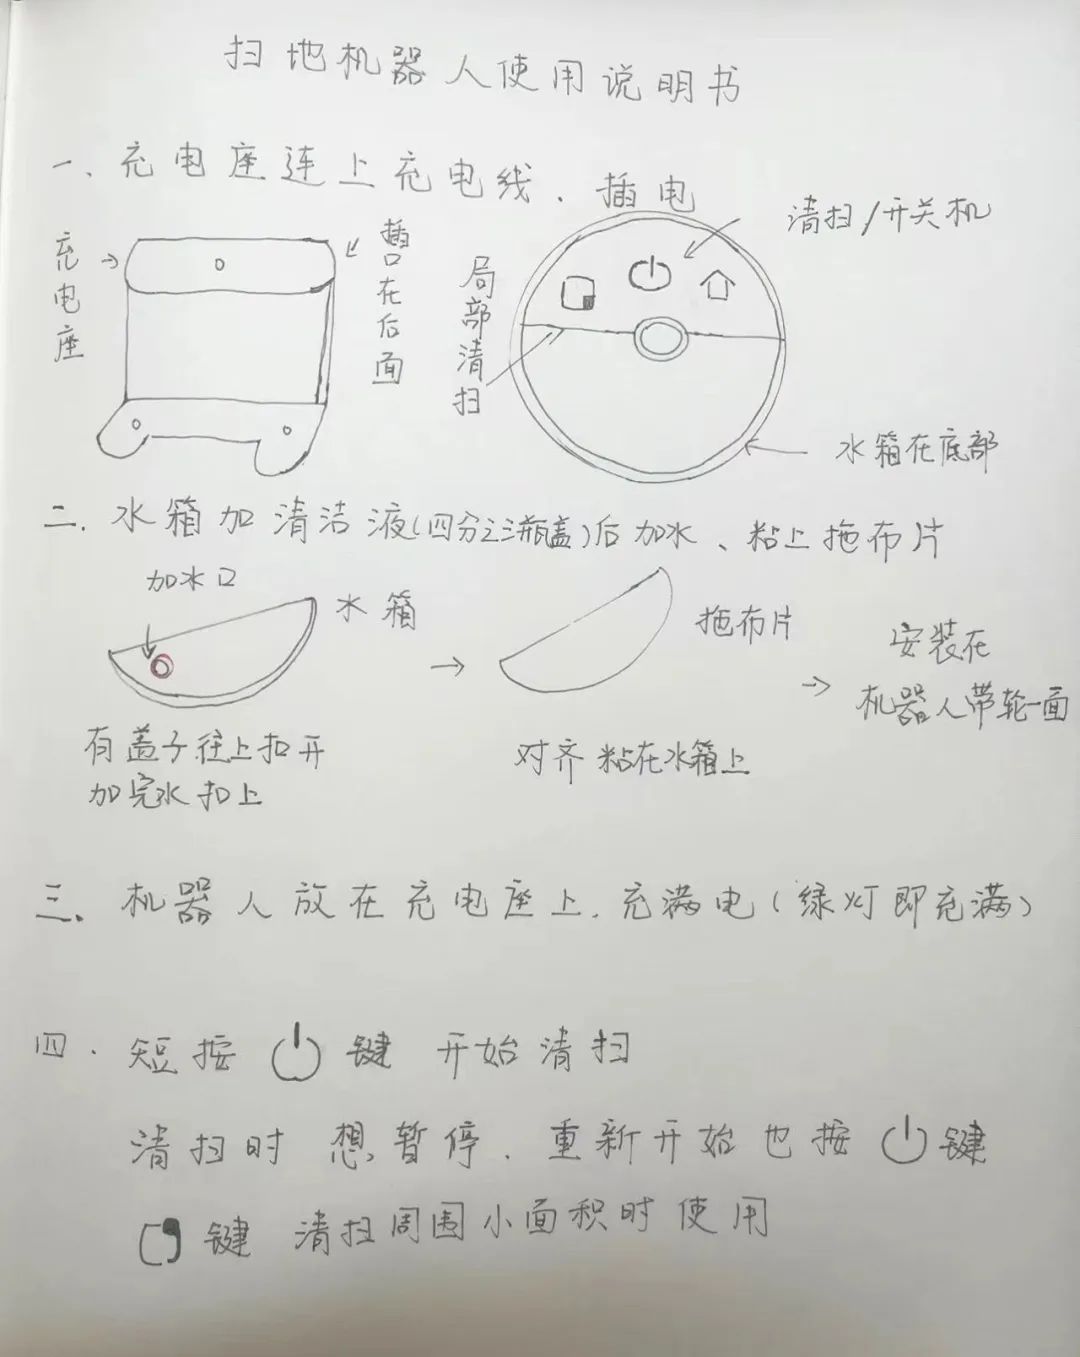 扫地机器人使用说明书
一、充电座连上充电线、插电
充电座
插口在后面
局部清扫
清扫/开关机
水箱在底部
二、水箱加清洁液(四分之三瓶盖)后加水、粘上拖布片
加水口
水箱
拖布片
安装在
机器人带轮一面
有盖子往上扣开
加完水扣上
对齐粘在水箱上
三、机器人放在充电座上、充满电(绿灯即充满)
四、短按 键 开始清扫
清扫时 想暂停、重新开始也按 键
键 清扫周围小面积时使用